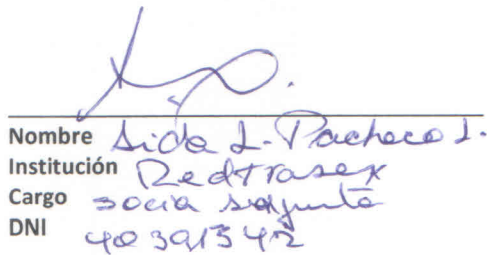 Nombre Aida L. Pacheco L.
Institución Redtrasex
Cargo socia
DNI 40391342